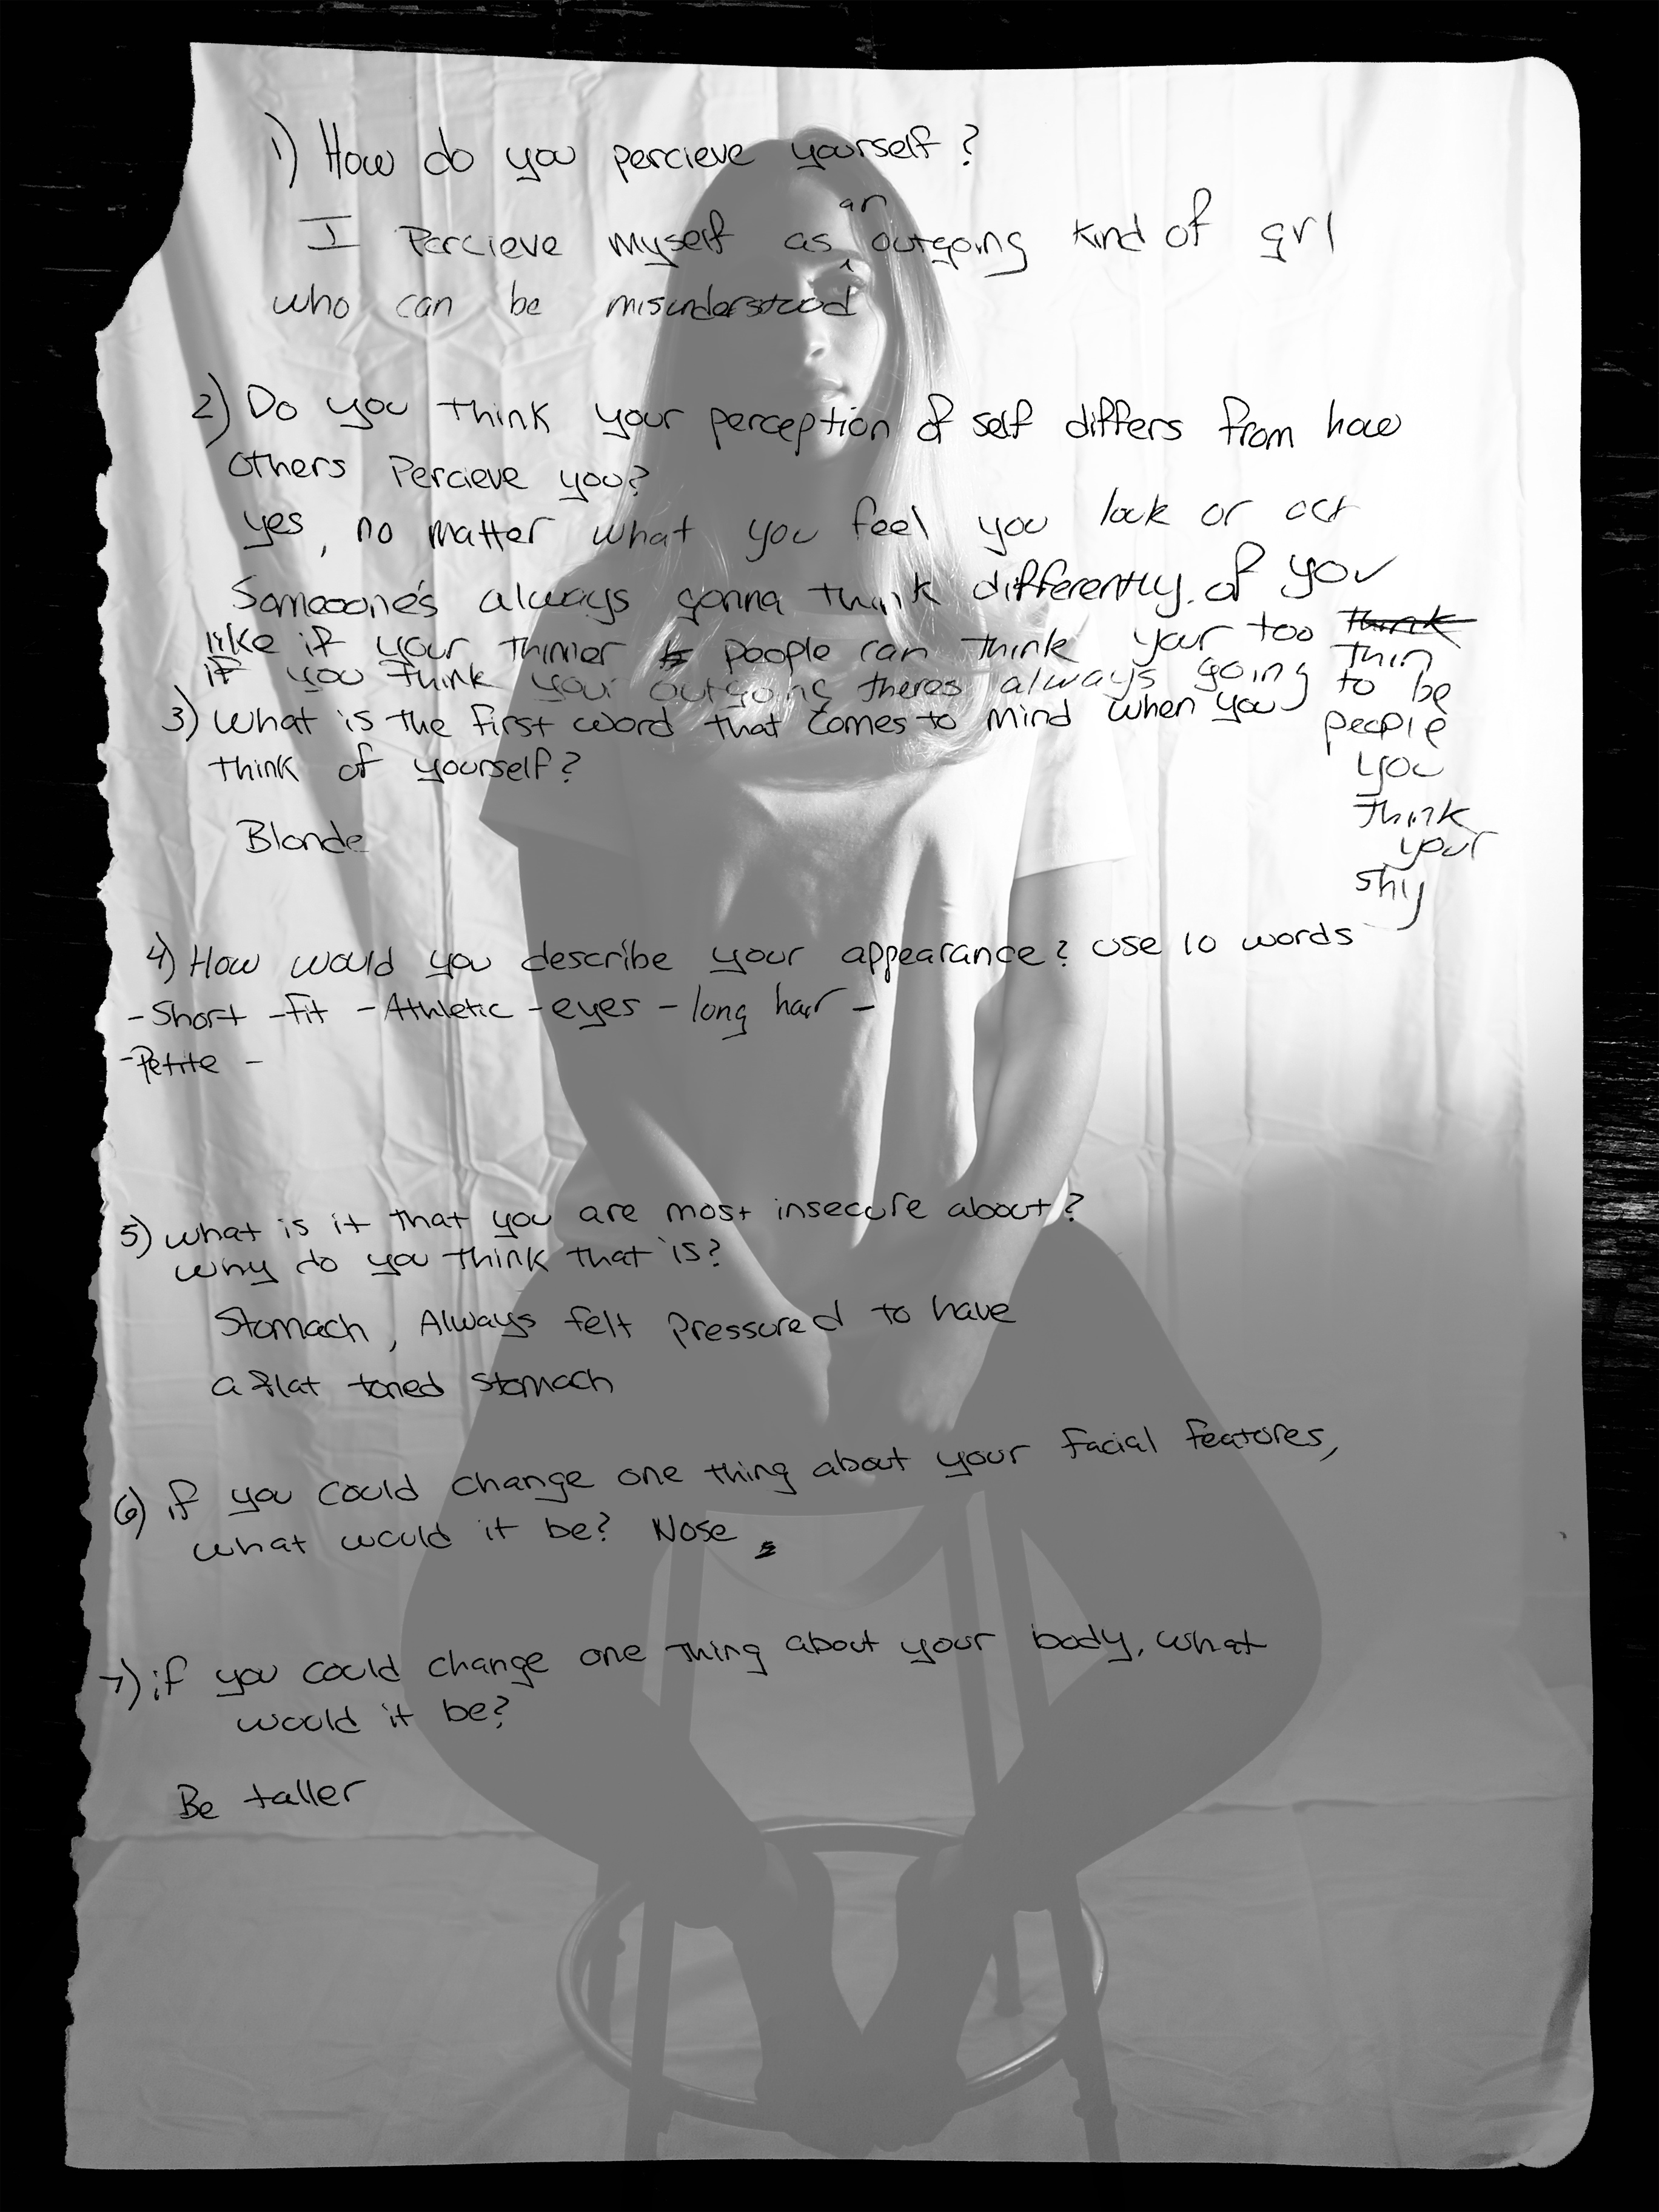 1) How do you percieve yourself?
I Percieve myself as an outgoing kind of girl
who can be misunderstood
2) Do you think your perception of self differs from how
others Percieve you?
yes, no matter what you feel you look or act
Someoone's always gonna think differently. of you
like if your thinner people can think your too think thin
if you think your outgoing theres always going to be
people
you
think
your
shy
3) What is the first word that comes to mind when you
think of yourself?
Blonde
4) How would you describe your appearance? Use 10 words
- Short - Fit - Athletic - eyes - long hair -
- Petite -
5) what is it that you are most insecure about?
why do you think that is?
Stomach, Always felt pressured to have
a flat toned stomach
6) if you could change one thing about your facial features,
what would it be? Nose
7) if you could change one thing about your body, what
would it be?
Be taller